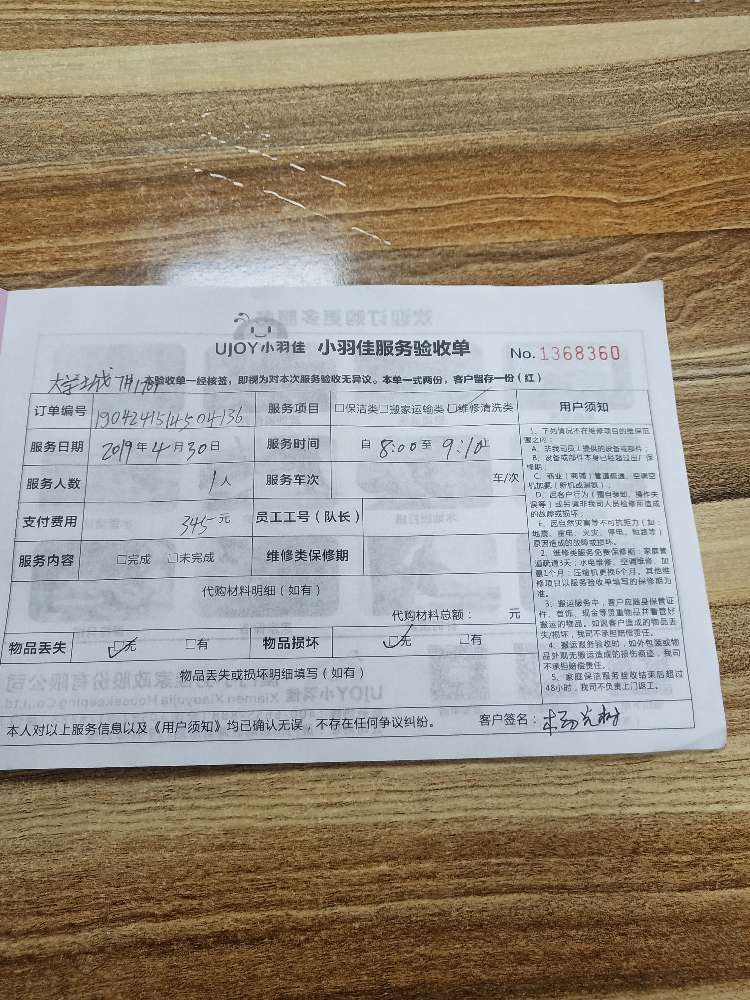 UJOY小羽佳 小羽佳服务验收单 No.1368360
大学城
本验收单一经核签，即视为对本次服务验收无异议。本单一式两份，客户留存一份（红）
订单编号 服务项目 □保洁类□搬家运输类□维修清洗类 用户须知
服务日期 2019年4月30日 服务时间 自8:00至9:10止
服务人数 1人 服务车次 车/次
支付费用 345元 员工工号（队长）
服务内容 □完成 □未完成 维修类保修期
代购材料明细（如有）
代购材料总额： 元
物品丢失 □无 □有 物品损坏 □无 □有
物品丢失或损坏明细填写（如有）
1、下列情况不在维修项目的维保范围之内：
A、非我司员工提供的设备或部件；
B、设备或部件本身已经超过出厂保修期；
C、商业（商铺）管道疏通、空调空机加氟（新机或漏氟）；
D、因客户行为（擅自装卸、操作失误等）或另请非我司人员检修而造成的故障或损坏；
E、因自然灾害等不可抗拒力（如：地震、雷电、火灾、停电、短路等）原因造成的故障或损坏。
2、维修类服务免费保修期：家庭管道疏通3天；水电维修、空调维修、加氟1个月；压缩机更换6个月，其他维修项目以服务验收单填写的保修期为准。
3、搬运服务中，客户应随身保管证件、首饰、现金等贵重物品并看管好搬运的物品。如因客户造成的物品丢失/损坏，我司不承担赔偿责任。
4、搬运服务验收时，如外包装或物品外观无搬运造成的损伤痕迹，我司不承担赔偿责任。
5、家庭保洁服务验收结束后超过48小时，我司不负责上门返工。
本人对以上服务信息以及《用户须知》均已确认无误，不存在任何争议纠纷。 客户签名：